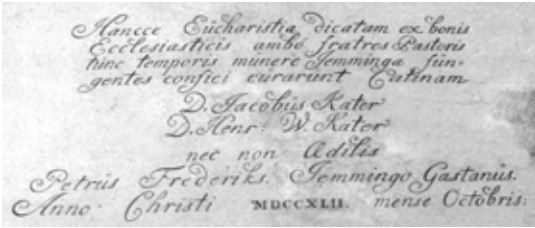 Hancce Eücharistiæ dicatam ex bonis
Ecclesiasticis ambo fratres Pastoris
hinc temporis münere Jemminga fün-
gentes confici cürarünt Catinam
D. Jacobüs Kater
D. Henr: W. Kater
nec non Ædilis
Petrüs Frederiks. Jemmingo Gastanüs.
Anno Christi MDCCXLII. mense Octobris: